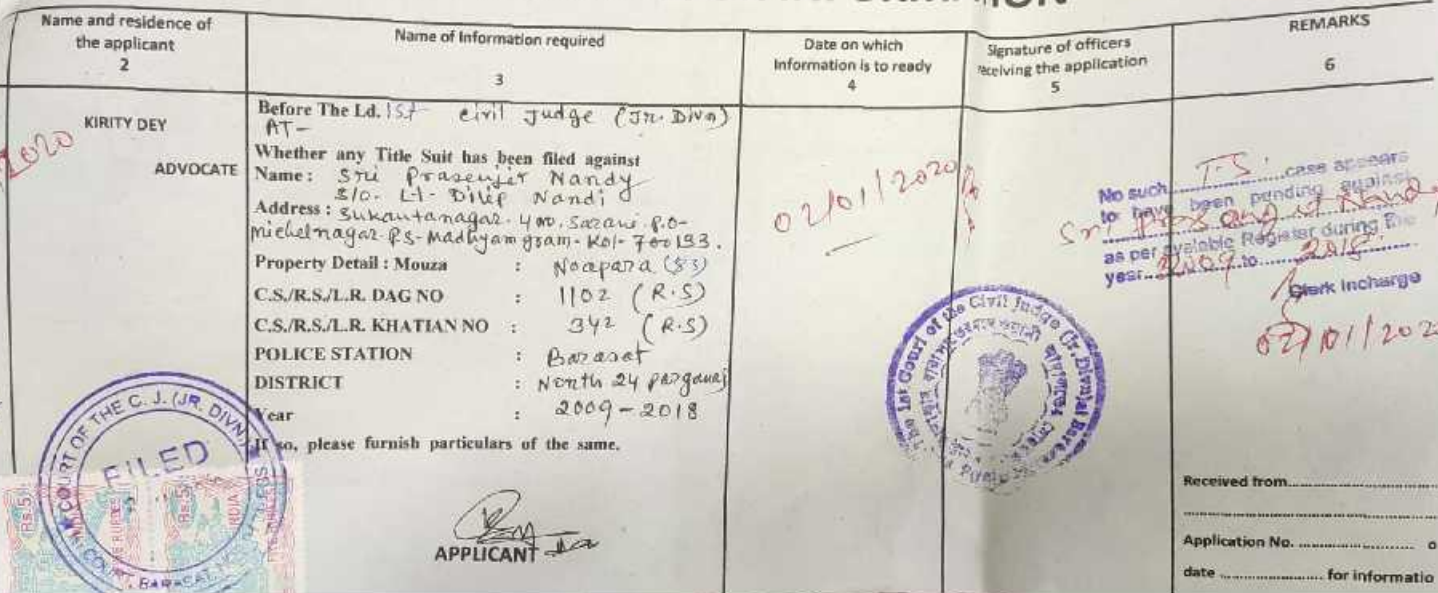 Name and residence of
the applicant
2
Name of Information required
3
Date on which
Information is to ready
4
Signature of officers
receiving the application
5
REMARKS
6
2020
KIRITY DEY
ADVOCATE
Before The Ld. 1st Civil Judge (Jr. Divn)
AT-
Whether any Title Suit has been filed against
Name : Sri Prasenjit Nandy
S/O- Lt- Dilip Nandi
Address : Sukantanagar. 4 no. Sarani P.O-
Michelnagar. P.S- Madhyamgram- Kol- 700133.
Property Detail : Mouza : Noapara (83)
C.S./R.S./L.R. DAG NO : 1102 (R.S)
C.S./R.S./L.R. KHATIAN NO : 342 (R.S)
POLICE STATION : Barasat
DISTRICT : North 24 Parganas
Year : 2009-2018
If so, please furnish particulars of the same.
APPLICANT
02/01/2020
No such T.S. case appears
to have been pending against
Sri Nandy
as per available Register during the
year 2009 to 2018
Clerk Incharge
02/01/202
The 1st Court of the Civil Judge (Jr. Divn) at
COURT OF THE C. J. (JR. DIVN)
FILED
COURT, BARASAT
Rs.5
Rs.5
INDIA
Received from
Application No.
date for informatio